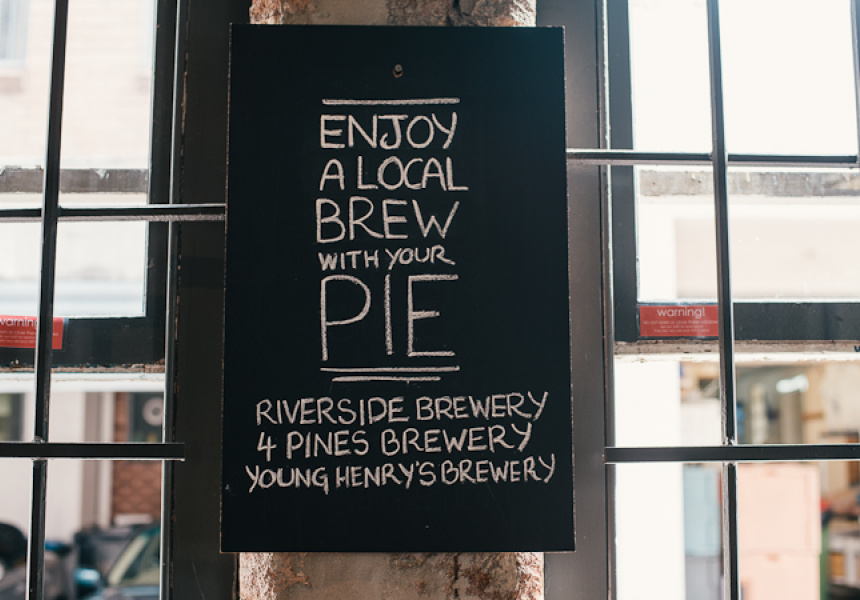 ENJOY
A LOCAL
BREW
WITH YOUR
PIE
RIVERSIDE BREWERY
4 PINES BREWERY
YOUNG HENRY'S BREWERY
warning!
warning!